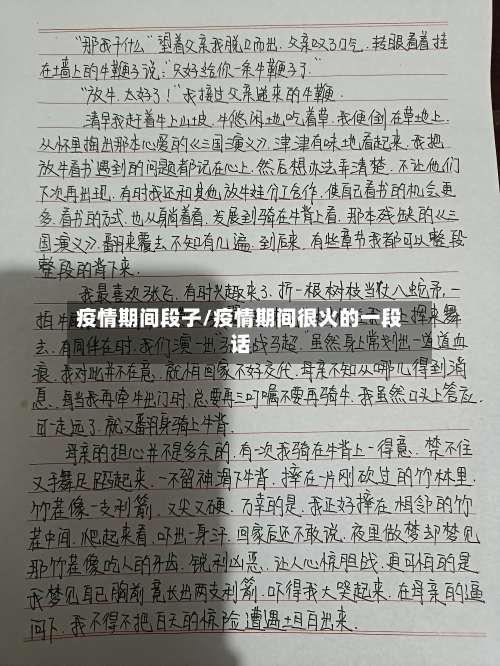 “那我干什么”望着父亲我脱口而出.父亲叹了口气,转眼看着挂
在墙上的牛鞭子说:“只好给你一条牛鞭子了”
“放牛,太好了!”我接过父亲递来的牛鞭.
清早我赶着牛上山坡,牛悠闲地吃着草,我便倒在草地上,
从怀里掏出那本心爱的《三国演义》,津津有味地看起来.我把
放牛看书遇到的问题都记在心上,然后想办法弄清楚,不让他们
下次再出现,有时我还和其他放牛娃分工合作,使自己看书的机会更
多.看书的方式,也从躺着看,发展到骑在牛背上看.那本残缺的《三
国演义》,翻来覆去不知有几遍.到后来,有些章节我都可以整段
整段的背下来.
我最喜欢张飞,有时兴趣来了.折一根树枝当丈八蛇矛,一
疫情期间段子/疫情期间很火的一段
话
去.有同伴在时.我们演一出 战马超.虽然身上常划出一道道血
痕,我对此并不在意.就怕回家不好交代.母亲不知从哪儿得到消
息.每当我再牵牛出门时.总要再三叮嘱不要再骑牛.我虽然口头上答应,
可一走远了.就又翻身骑上牛背.
母亲的担心并不是多余的,有一次我骑在牛背上一得意.禁不住
又手舞足蹈起来.一不留神滑下牛背.摔在一片刚砍过的竹林里.
竹茬像一支利箭.又尖又硬.万幸的是,我正好摔在相邻的竹
茬中间.爬起来看.吓出一身汗.回家后还不敢说.夜里做梦却梦见
那竹茬像吃人的牙齿.锐利凶恶.让人心惊胆战.更可怕的是
我梦见自己胸前竟长出两支利箭.吓得我大哭起来.在母亲的逼
问下.我不得不把白天的惊险遭遇 白出来.